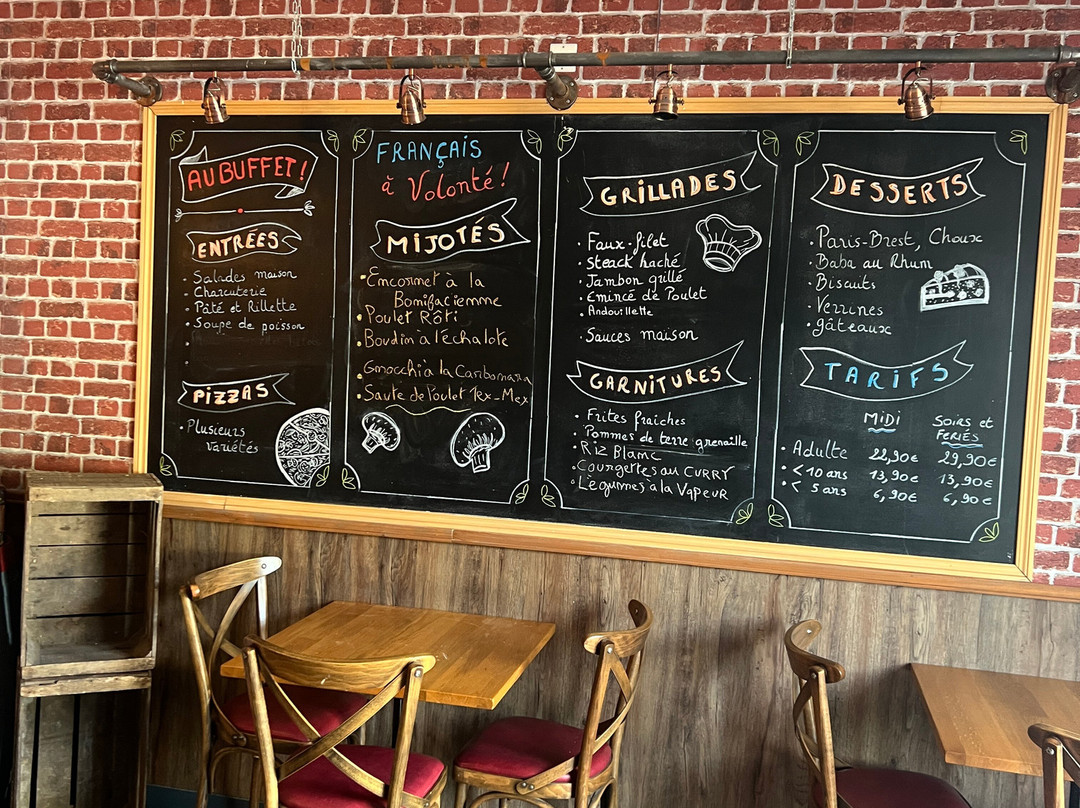 AU BUFFET!
ENTRÉES
- Salades maison
- Charcuterie
- Pâté et Rillette
- Soupe de poisson
PIZZAS
• Plusieurs
variétés
FRANÇAIS
à Volonté!
MIJOTÉS
• Encornet à la
Bonifacienne
• Poulet Rôti
• Boudin à l'échalote
• Gnocchi à la Carbonara
• Sauté de Poulet Tex-Mex
GRILLADES
• Faux-filet
• Steack haché
• Jambon grillé
• Emincé de Poulet
• Andouillette
• Sauces maison
GARNITURES
• Frites fraiches
• Pommes de terre grenaille
• Riz Blanc
• Courgettes au CURRY
• Légumes à la Vapeur
DESSERTS
• Paris-Brest, Choux
• Baba au Rhum
• Biscuits
• Verrines
• gâteaux
TARIFS
MIDI Soirs et
Feriés
• Adulte 22,90€ 29,90€
• < 10 ans 13,90€ 13,90€
• < 5 ans 6,90€ 6,90€